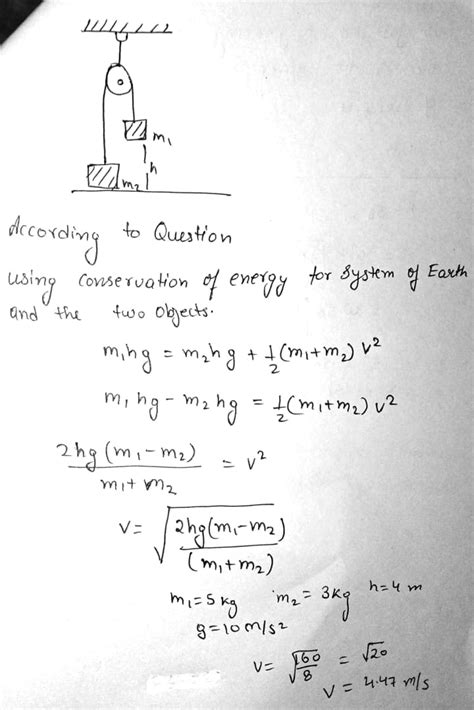 m₁
h
m₂
According to Question
using conservation of energy for system of Earth
and the two objects.
m₁hg = m₂hg + 1/2 (m₁+m₂) v²
m₁hg - m₂hg = 1/2 (m₁+m₂) v²
2hg(m₁-m₂) / m₁+m₂ = v²
v = √(2hg(m₁-m₂) / (m₁+m₂))
m₁=5kg m₂=3kg h=4 m
g=10m/s²
v= √(160/8) = √20
v = 4.47 m/s